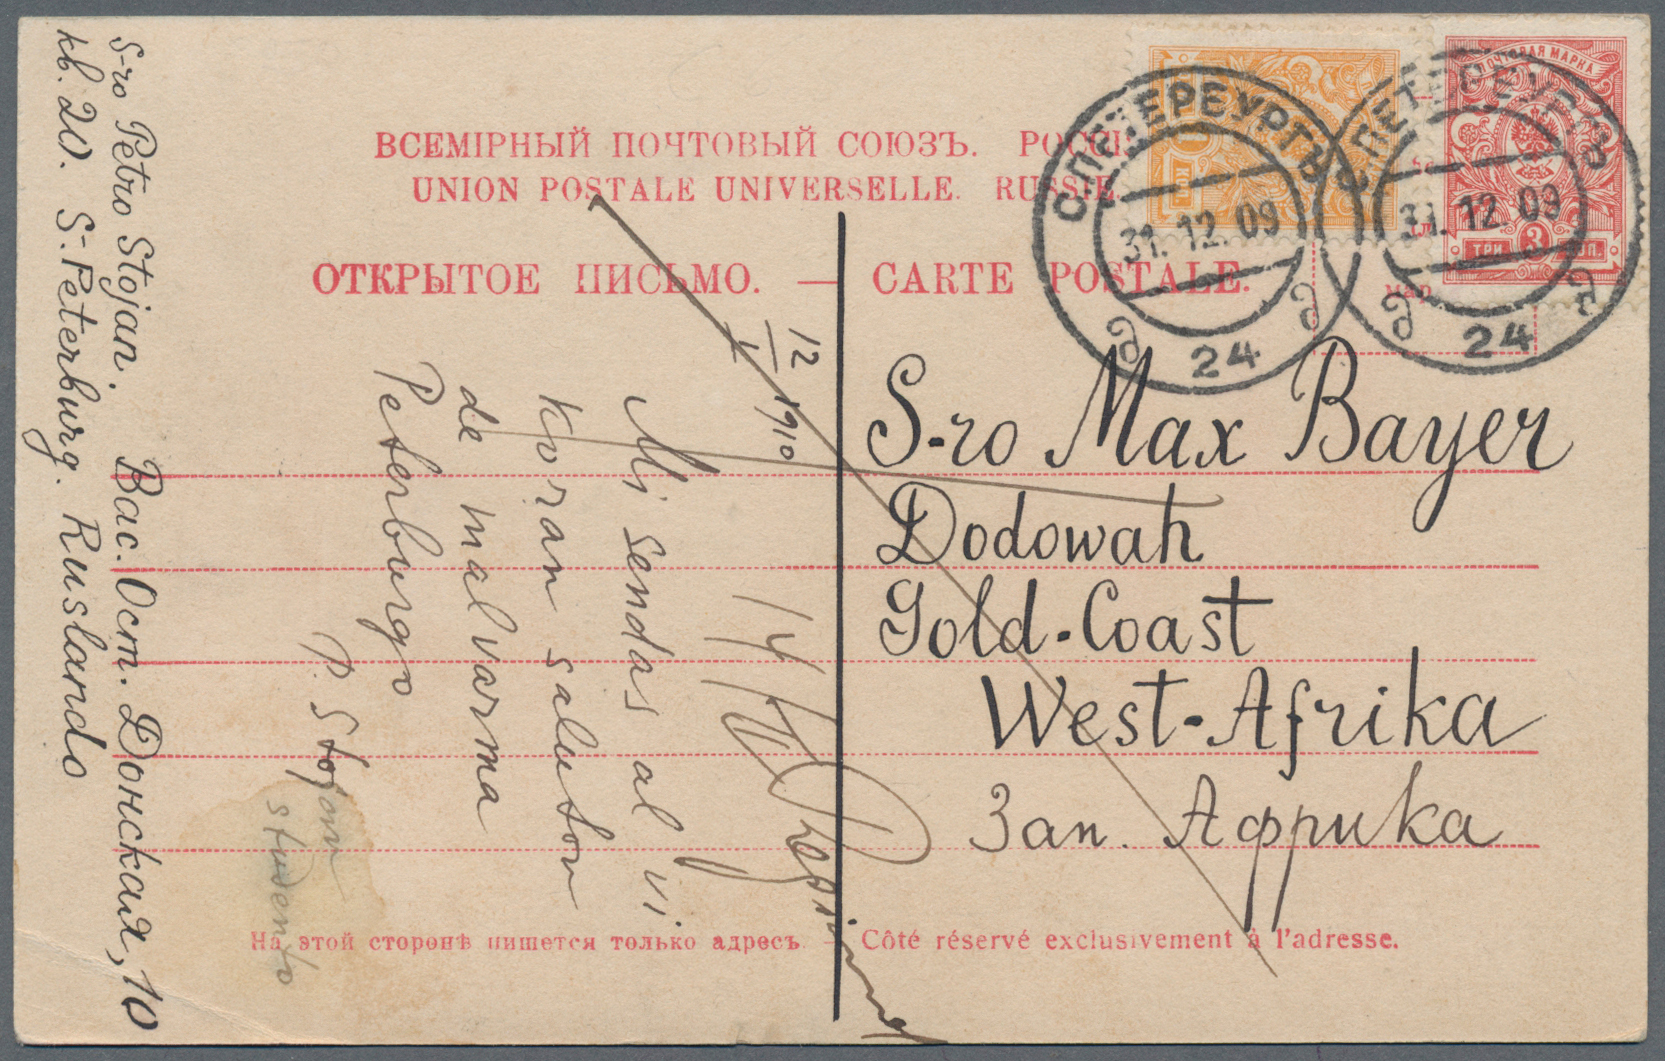 ВСЕМІРНЫЙ ПОЧТОВЫЙ СОЮЗЪ. РОССІ
UNION POSTALE UNIVERSELLE. RUSSIE.
ОТКРЫТОЕ ПИСЬМО. — CARTE POSTALE.
С.ПЕТЕРБУРГЪ
31.12.09
24
С.ПЕТЕРБУРГЪ
31.12.09
24
ПОЧТОВАЯ МАРКА
ТРИ 3 КОП.
мар
S-ro Max Bayer
Dodowah
Gold-Coast
West-Afrika
Зап. Африка
12/I 1910
Mi sendas al vi
koran saluton
de malvarma
Peterburgo
P. Stojan
studento
S-ro Petro Stojan. Вас. Ост. Донская, 10
кв. 20. S-Peterburg. Ruslando
На этой сторонѣ пишется только адресъ. — Côté réservé exclusivement à l'adresse.